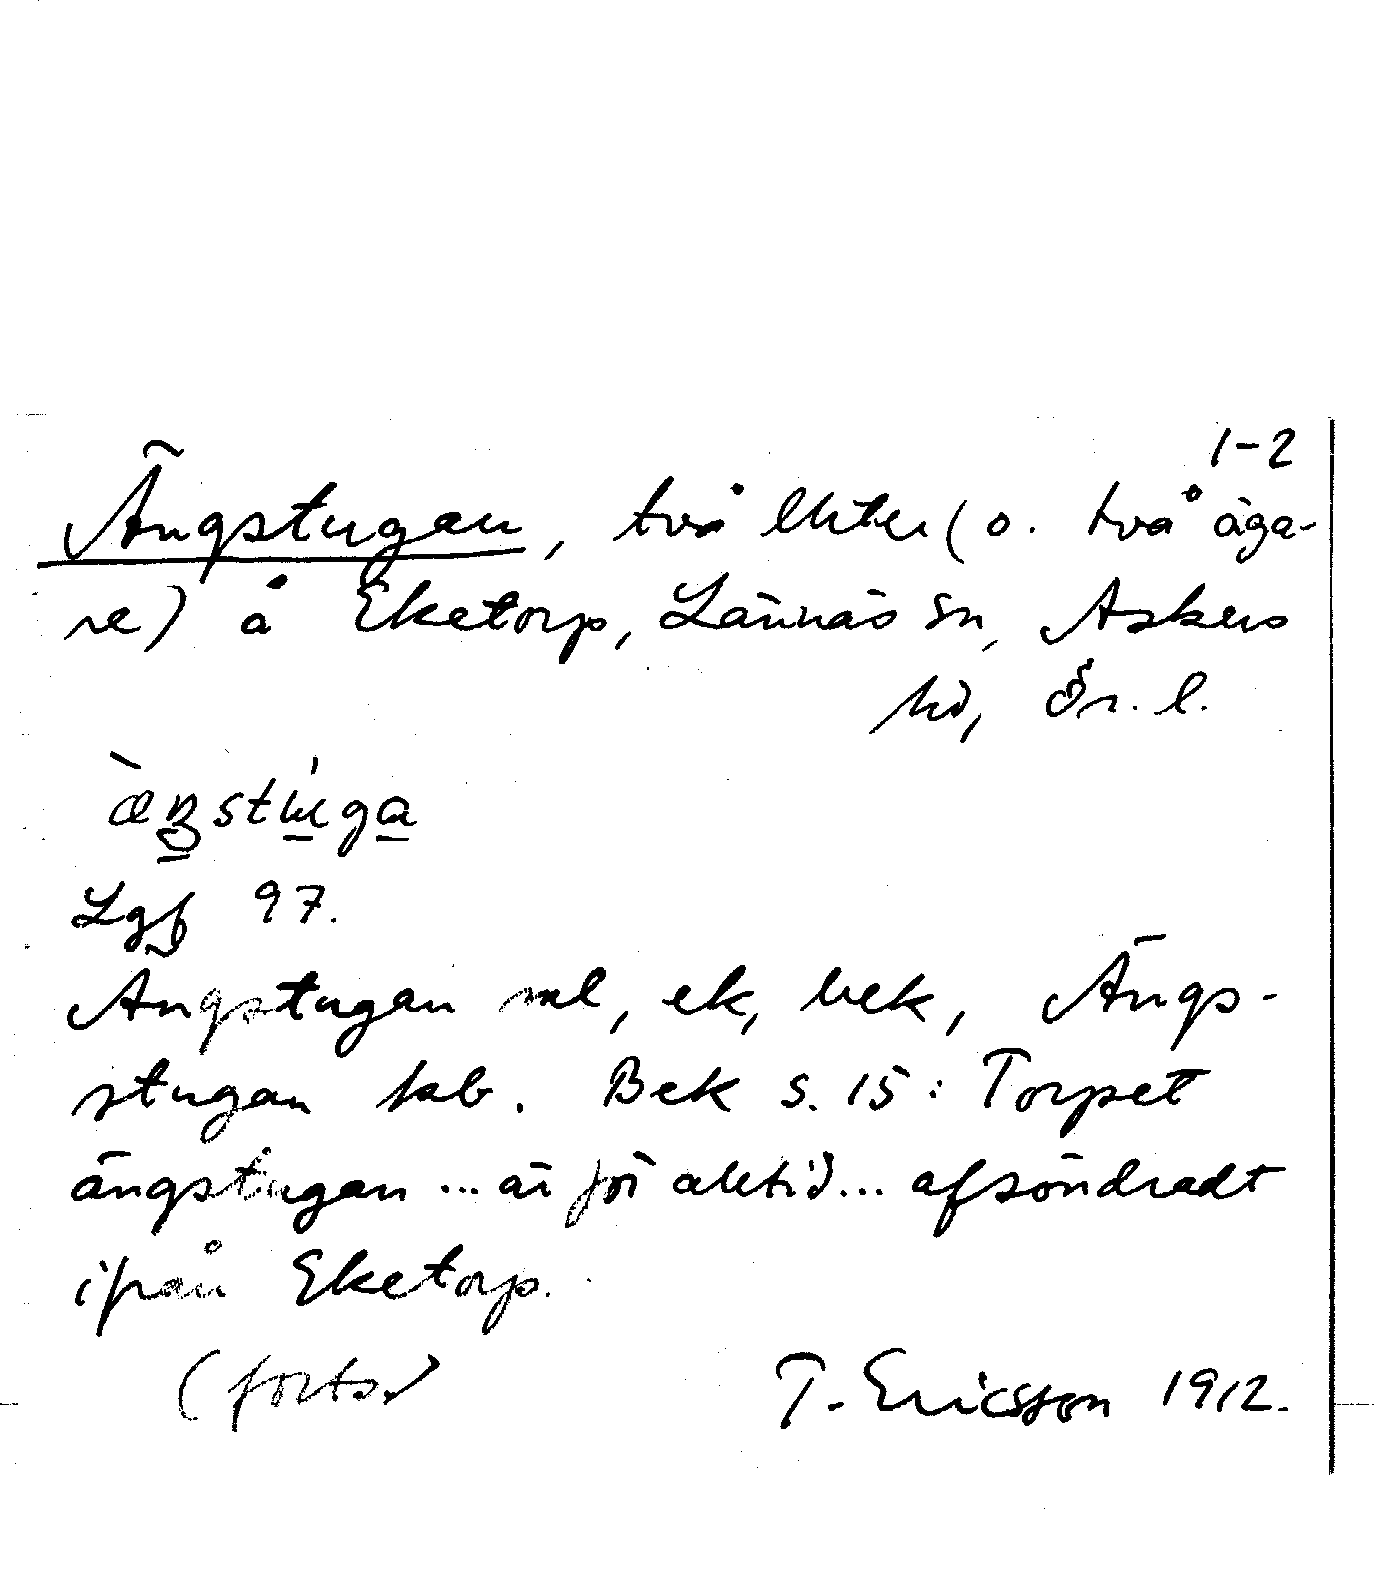 1-2
Ängstugan, två lhter (o. två äga-
re) å Eketorp, Lännäs sn, Askers
hd, Ör. l.
Lgf 97.
Ängstugan ml, ek, bek, Ängs-
stugan kab. Bek s. 15: Torpet
ängstugan ... är för alltid ... afsöndradt
ifrån Eketorp.
(forts.)
T. Ericsson 1912.